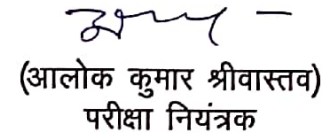 (आलोक कुमार श्रीवास्तव)
परीक्षा नियंत्रक